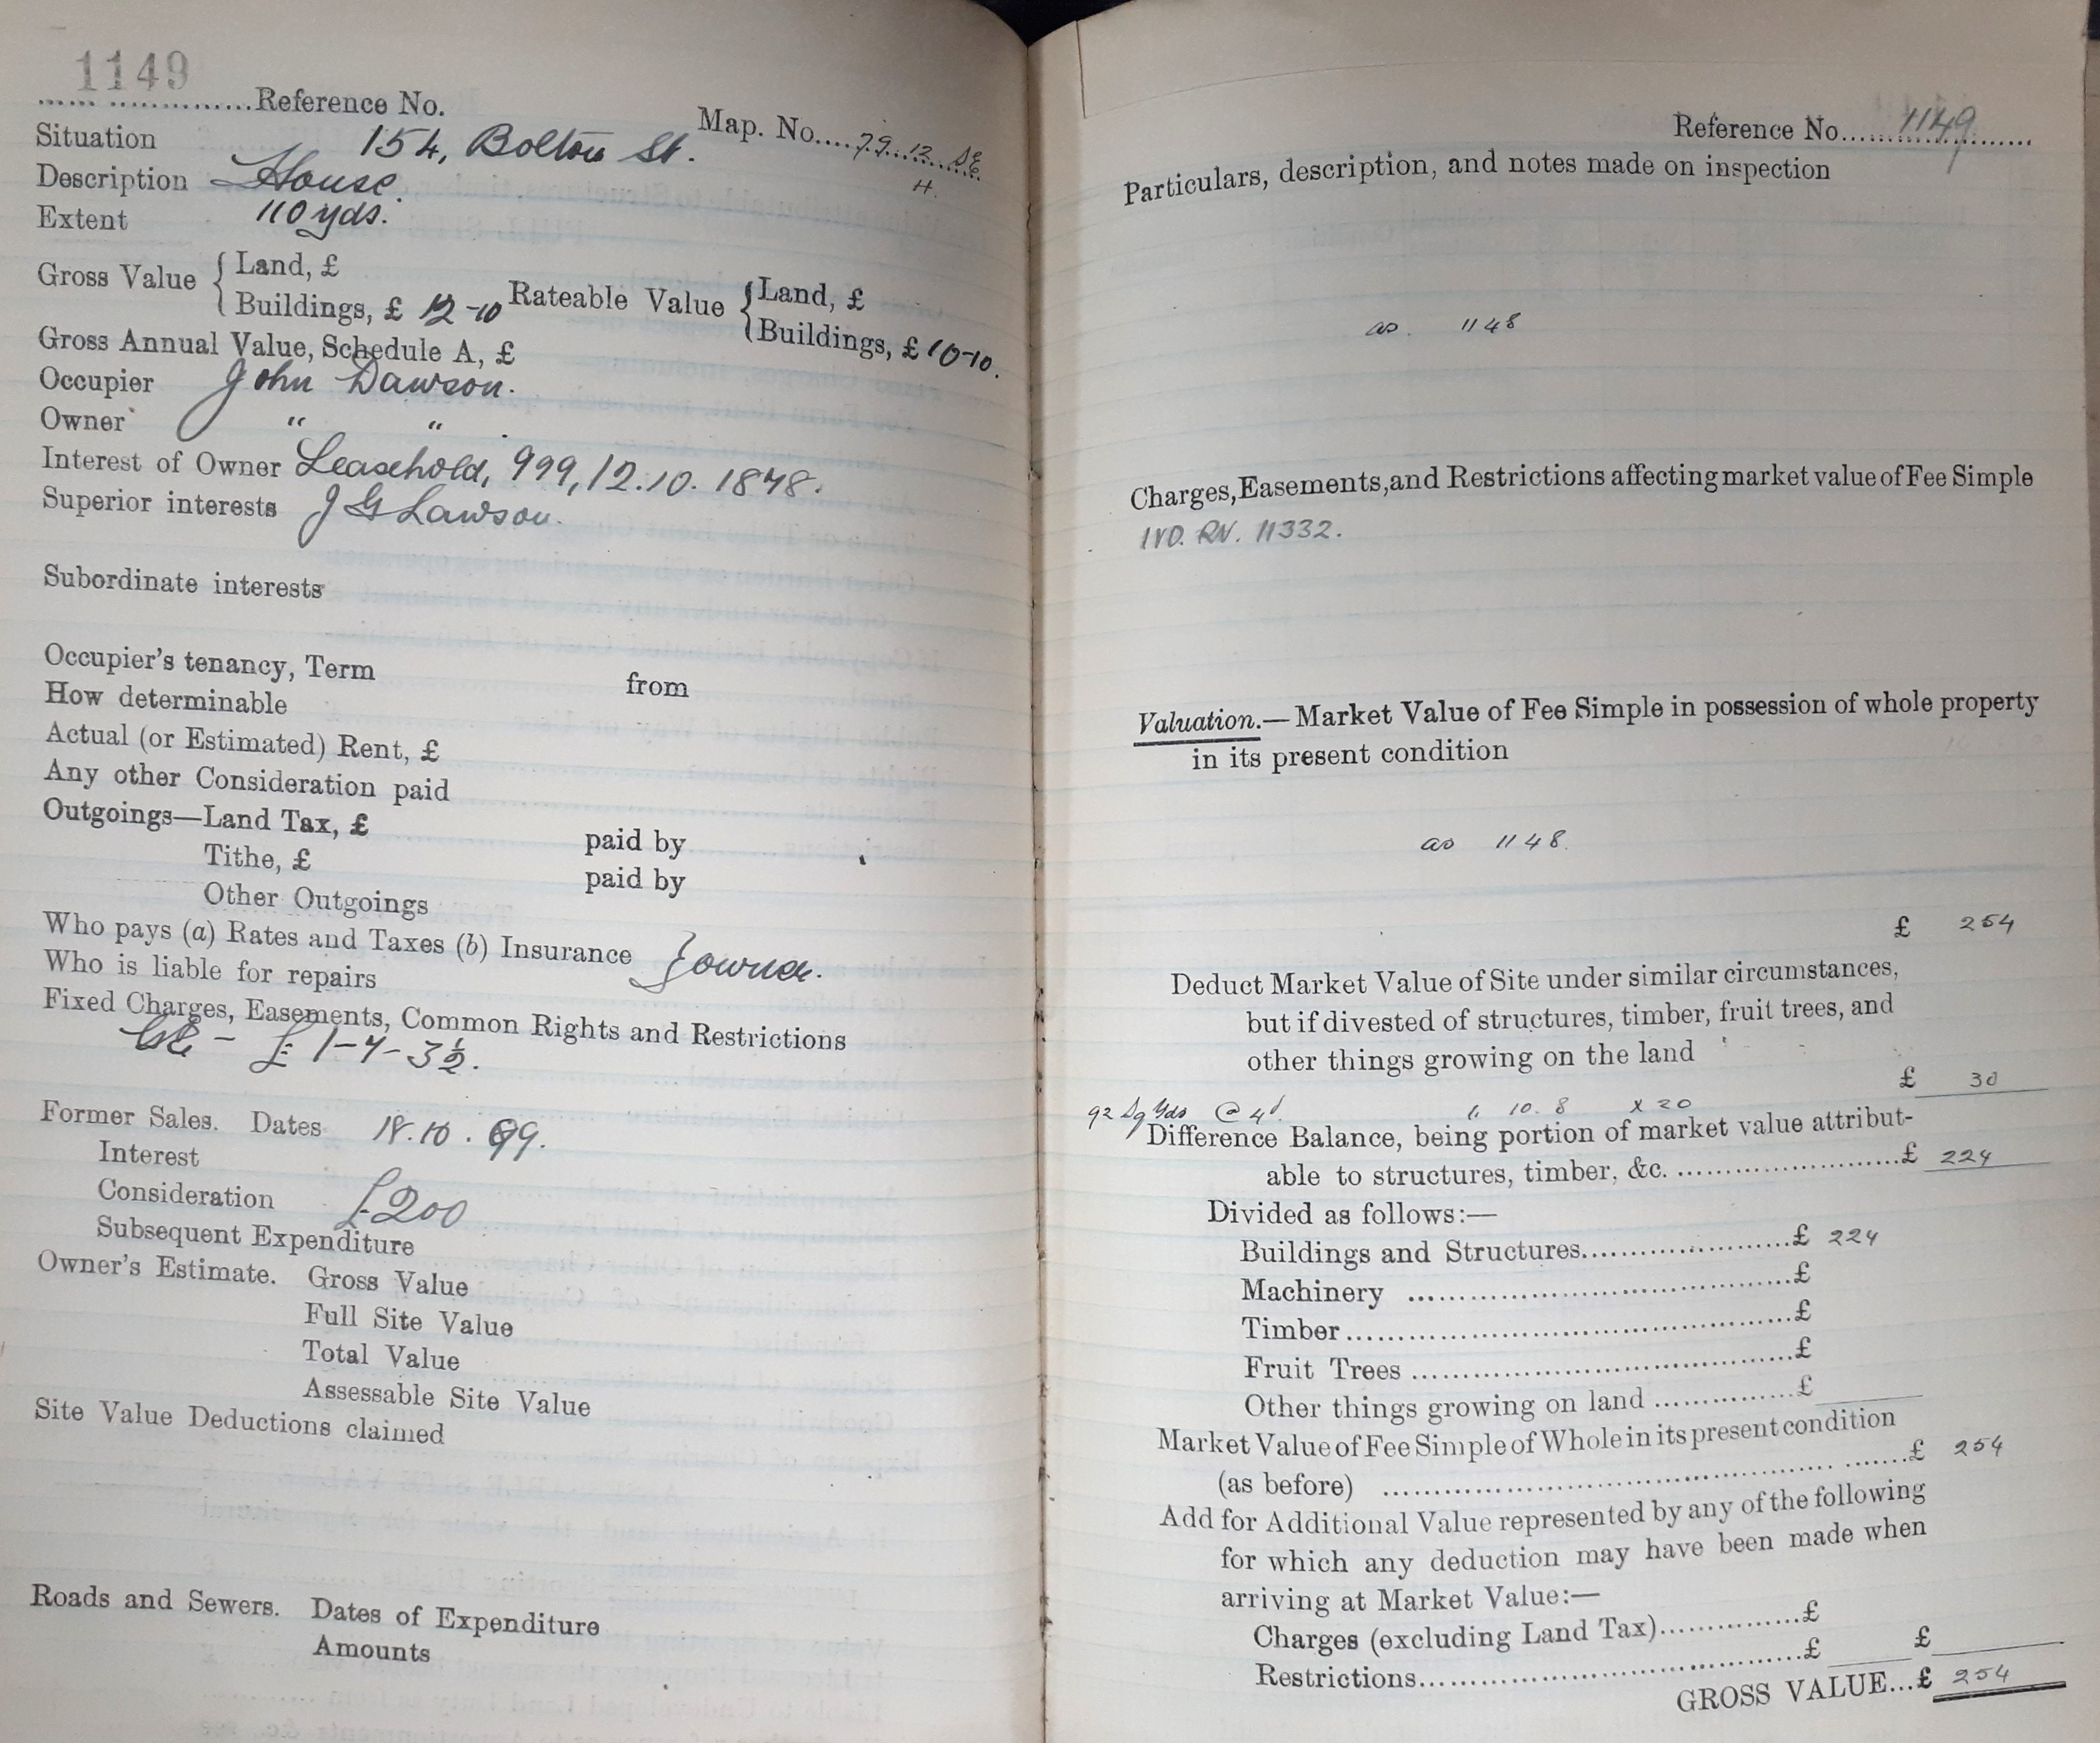 1149
Reference No.
Map. No. 79.12 SE
H.
Situation 154, Bolton St.
Description House.
Extent 110 yds.
Gross Value { Land, £
Buildings, £ 12-10
Rateable Value { Land, £
Buildings, £ 10-10.
Gross Annual Value, Schedule A, £
Occupier John Dawson.
Owner " " .
Interest of Owner Leasehold, 999, 12.10.1878.
Superior interests J G Lawson.
Subordinate interests
Occupier's tenancy, Term from
How determinable
Actual (or Estimated) Rent, £
Any other Consideration paid
Outgoings—Land Tax, £ paid by
Tithe, £ paid by
Other Outgoings
Who pays (a) Rates and Taxes (b) Insurance } owner.
Who is liable for repairs
Fixed Charges, Easements, Common Rights and Restrictions
£1-4-3½.
Former Sales. Dates 18.10.99.
Interest
Consideration £200
Subsequent Expenditure
Owner's Estimate. Gross Value
Full Site Value
Total Value
Assessable Site Value
Site Value Deductions claimed
Roads and Sewers. Dates of Expenditure
Amounts
Reference No. 1149
Particulars, description, and notes made on inspection
as. 1148
Charges, Easements, and Restrictions affecting market value of Fee Simple
IVD. RV. 11332.
Valuation.—Market Value of Fee Simple in possession of whole property
in its present condition
as 1148.
£ 254
Deduct Market Value of Site under similar circumstances,
but if divested of structures, timber, fruit trees, and
other things growing on the land
£ 30
92 Sq Yds @ 4d. 1. 10. 8 x 20
Difference Balance, being portion of market value attribut-
able to structures, timber, &c. £ 224
Divided as follows:—
Buildings and Structures £ 224
Machinery £
Timber £
Fruit Trees £
Other things growing on land £
Market Value of Fee Simple of Whole in its present condition
(as before) £ 254
Add for Additional Value represented by any of the following
for which any deduction may have been made when
arriving at Market Value:—
Charges (excluding Land Tax) £
Restrictions £ £
GROSS VALUE...£ 254